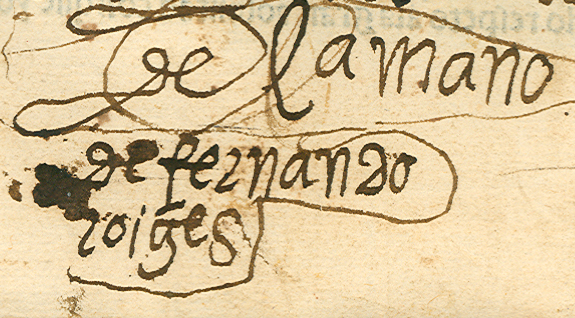 de la mano
de fernando
roiges